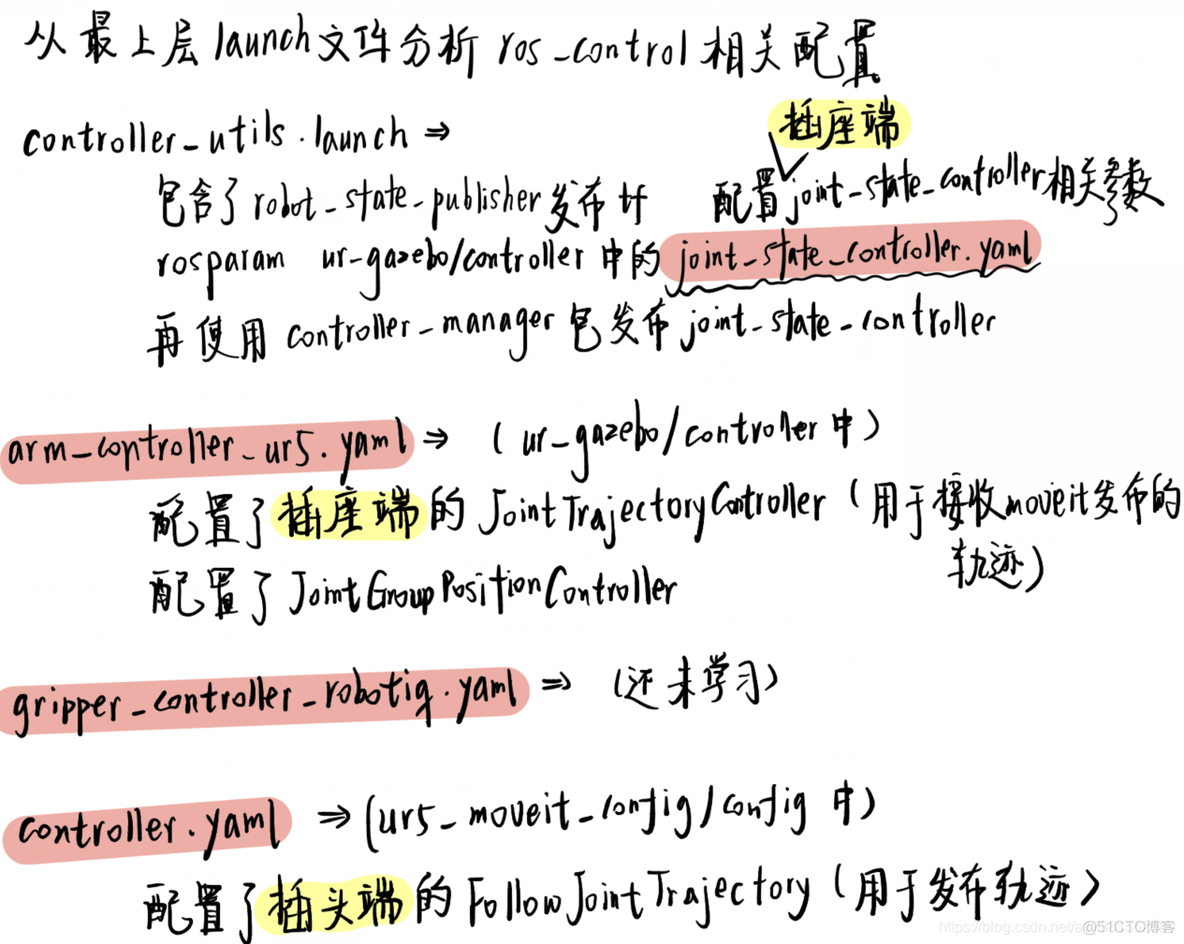 从最上层launch文件分析 ros_control 相关配置
controller_utils.launch ⇒
插座端
包含了robot_state_publisher发布tf 配置joint_state_controller相关参数
rosparam ur_gazebo/controller 中的 joint_state_controller.yaml
再使用 controller_manager包发布joint_state_controller
arm_controller_ur5.yaml ⇒ (ur_gazebo/controller 中)
配置了插座端的 JointTrajectoryController (用于接收moveit发布的
轨迹)
配置了 JointGroupPositionController
gripper_controller_robotiq.yaml ⇒ (还未学习)
controller.yaml ⇒ (ur5_moveit_config/config 中)
配置了插头端的 FollowJointTrajectory (用于发布轨迹)
@51CTO博客